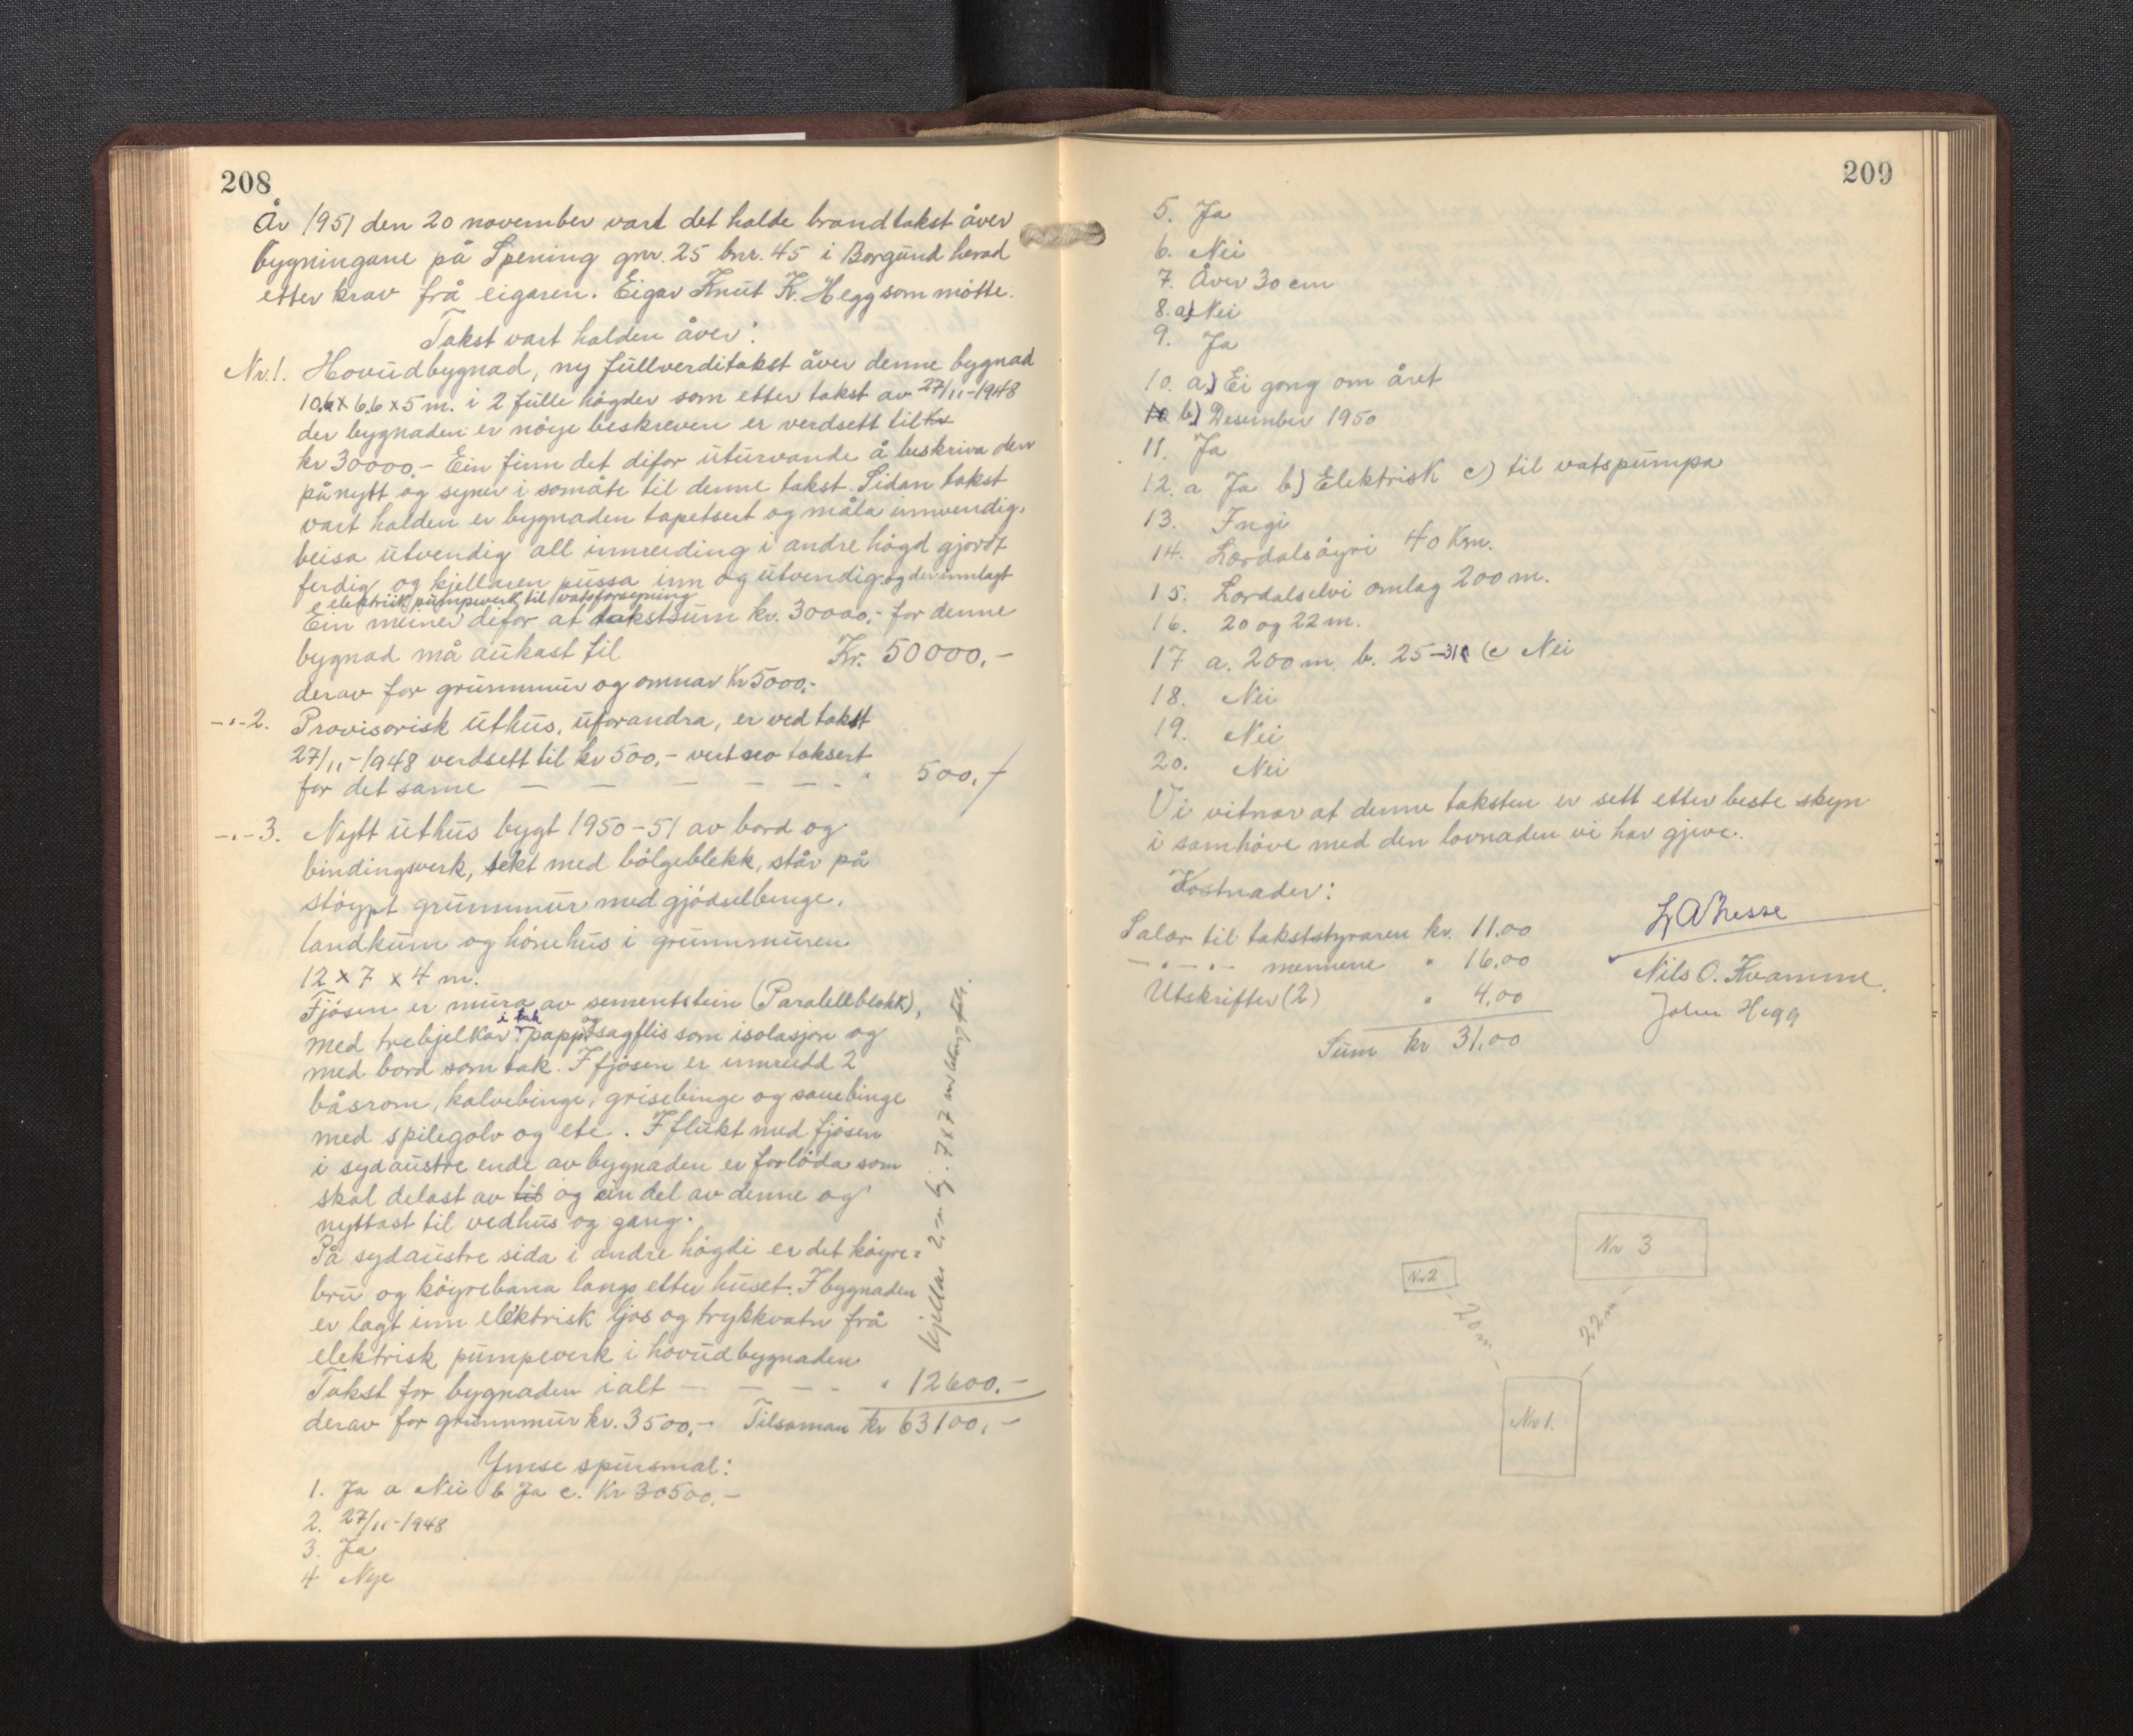 208
År 1951 den 20 november vart det halde brandtakst åver
bygningane på Spening gnr. 25 bnr. 45 i Borgund herad
etter krav frå eigaren. Eigar Knut K. Hegg som møtte.
Takst vart halden åver:
Nr. 1. Hovudbygnad, ny fullverditakst åver denne bygnad
10,6 x 6,6 x 5 m. i 2 fulle högder som etter takst av 27/11-1948
der bygnaden er nöye beskreven er verdsett til kr
kr 30000.- Ein finn det difor uturvande å beskriva den
på nytt og syner i somåte til denne takst. Sidan takst
vart halden er bygnaden tapetsert og måla innvendig,
beisa utvendig all innreiding i andre högd gjordt
ferdig og kjellaren pussa inn og utvendig og der innlagt
elektrisk pumpeverk til vatsforsyning
Ein meiner difor at takstsum kr. 30000,- for denne
bygnad må aukast til Kr. 50000,-
derav for grunnmur og omnar Kr 5000,-
-"- 2. Provisorisk uthus, uforandra, er ved takst
27/11-1948 verdsett til kr 500,- vert so taksert
for det same — — — — — " 500,-
-"- 3. Nytt uthus bygt 1950-51 av bord og
bindingsverk, tekt med bölgeblekk, står på
stöypt grunnmur med gjödselbinge,
landkum og hönehus i grunnmuren
12 x 7 x 4 m.
Fjösen er mura av sementstein (Paralellblokk),
med trebjelkar i tak papp og sagflis som isolasjon og
med bord som tak. I fjösen er innreidd 2
båsrom, kalvebinge, grisebinge og sauebinge
med spilegolv og ete. I flukt med fjösen
i sydaustre ende av bygnaden er forlöda som
skal delast av til og ein del av denne og
nyttast til vedhus og gang.
På sydaustre sida i andre högdi er det köyre=
bru og köyrebana langs etter huset. I bygnaden
er lagt inn elektrisk ljos og trykkvatn frå
elektrisk pumpeverk i hovudbygnaden
Takst for bygnaden ialt — — — - " 12600.-
derav for grunnmur kr. 3500,- Tilsaman kr 63100,-
Ymse spursmal:
1. Ja a Nei b Ja c. Kr 30500.-
2. 27/11-1948
3. Ja
4 Nye
kjellar 7 x 7 m
209
5. Ja
6. Nei
7. Åver 30 cm
8. a) Nei
9. Ja
10. a) Ei gong om året
10 b) Desember 1950
11. Ja
12. a Ja b) Elektrisk c) til vatspumpa
13. Ingi
14. Lærdalsöyri 40 Km.
15. Lærdalselvi omlag 200 m.
16. 20 og 22 m.
17 a. 200 m b. 25-31 c Nei
18. Nei
19. Nei
20. Nei
Vi vitnar at denne taksten er sett etter beste skyn
i samhöve med den lovnaden vi har gjeve.
Kostnader:
Salær til takststyraren kr. 11.00
-"- -"- mennene " 16,00
Utskrifter (2) " 4,00
Sum kr 31,00
Nils O. Kvamme
John Hegg
Nr 3
Nr 2
20 m
22 m
Nr 1.